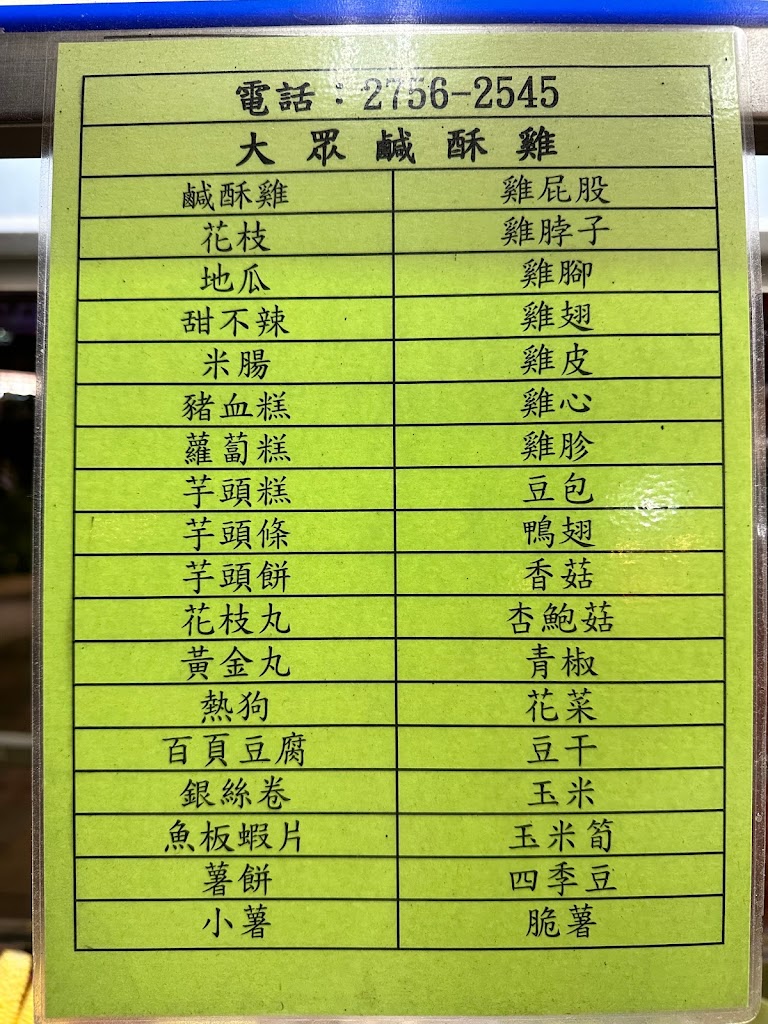 電話：2756-2545
大眾鹹酥雞
鹹酥雞 雞屁股
花枝 雞脖子
地瓜 雞腳
甜不辣 雞翅
米腸 雞皮
豬血糕 雞心
蘿蔔糕 雞胗
芋頭糕 豆包
芋頭條 鴨翅
芋頭餅 香菇
花枝丸 杏鮑菇
黃金丸 青椒
熱狗 花菜
百頁豆腐 豆干
銀絲卷 玉米
魚板蝦片 玉米筍
薯餅 四季豆
小薯 脆薯